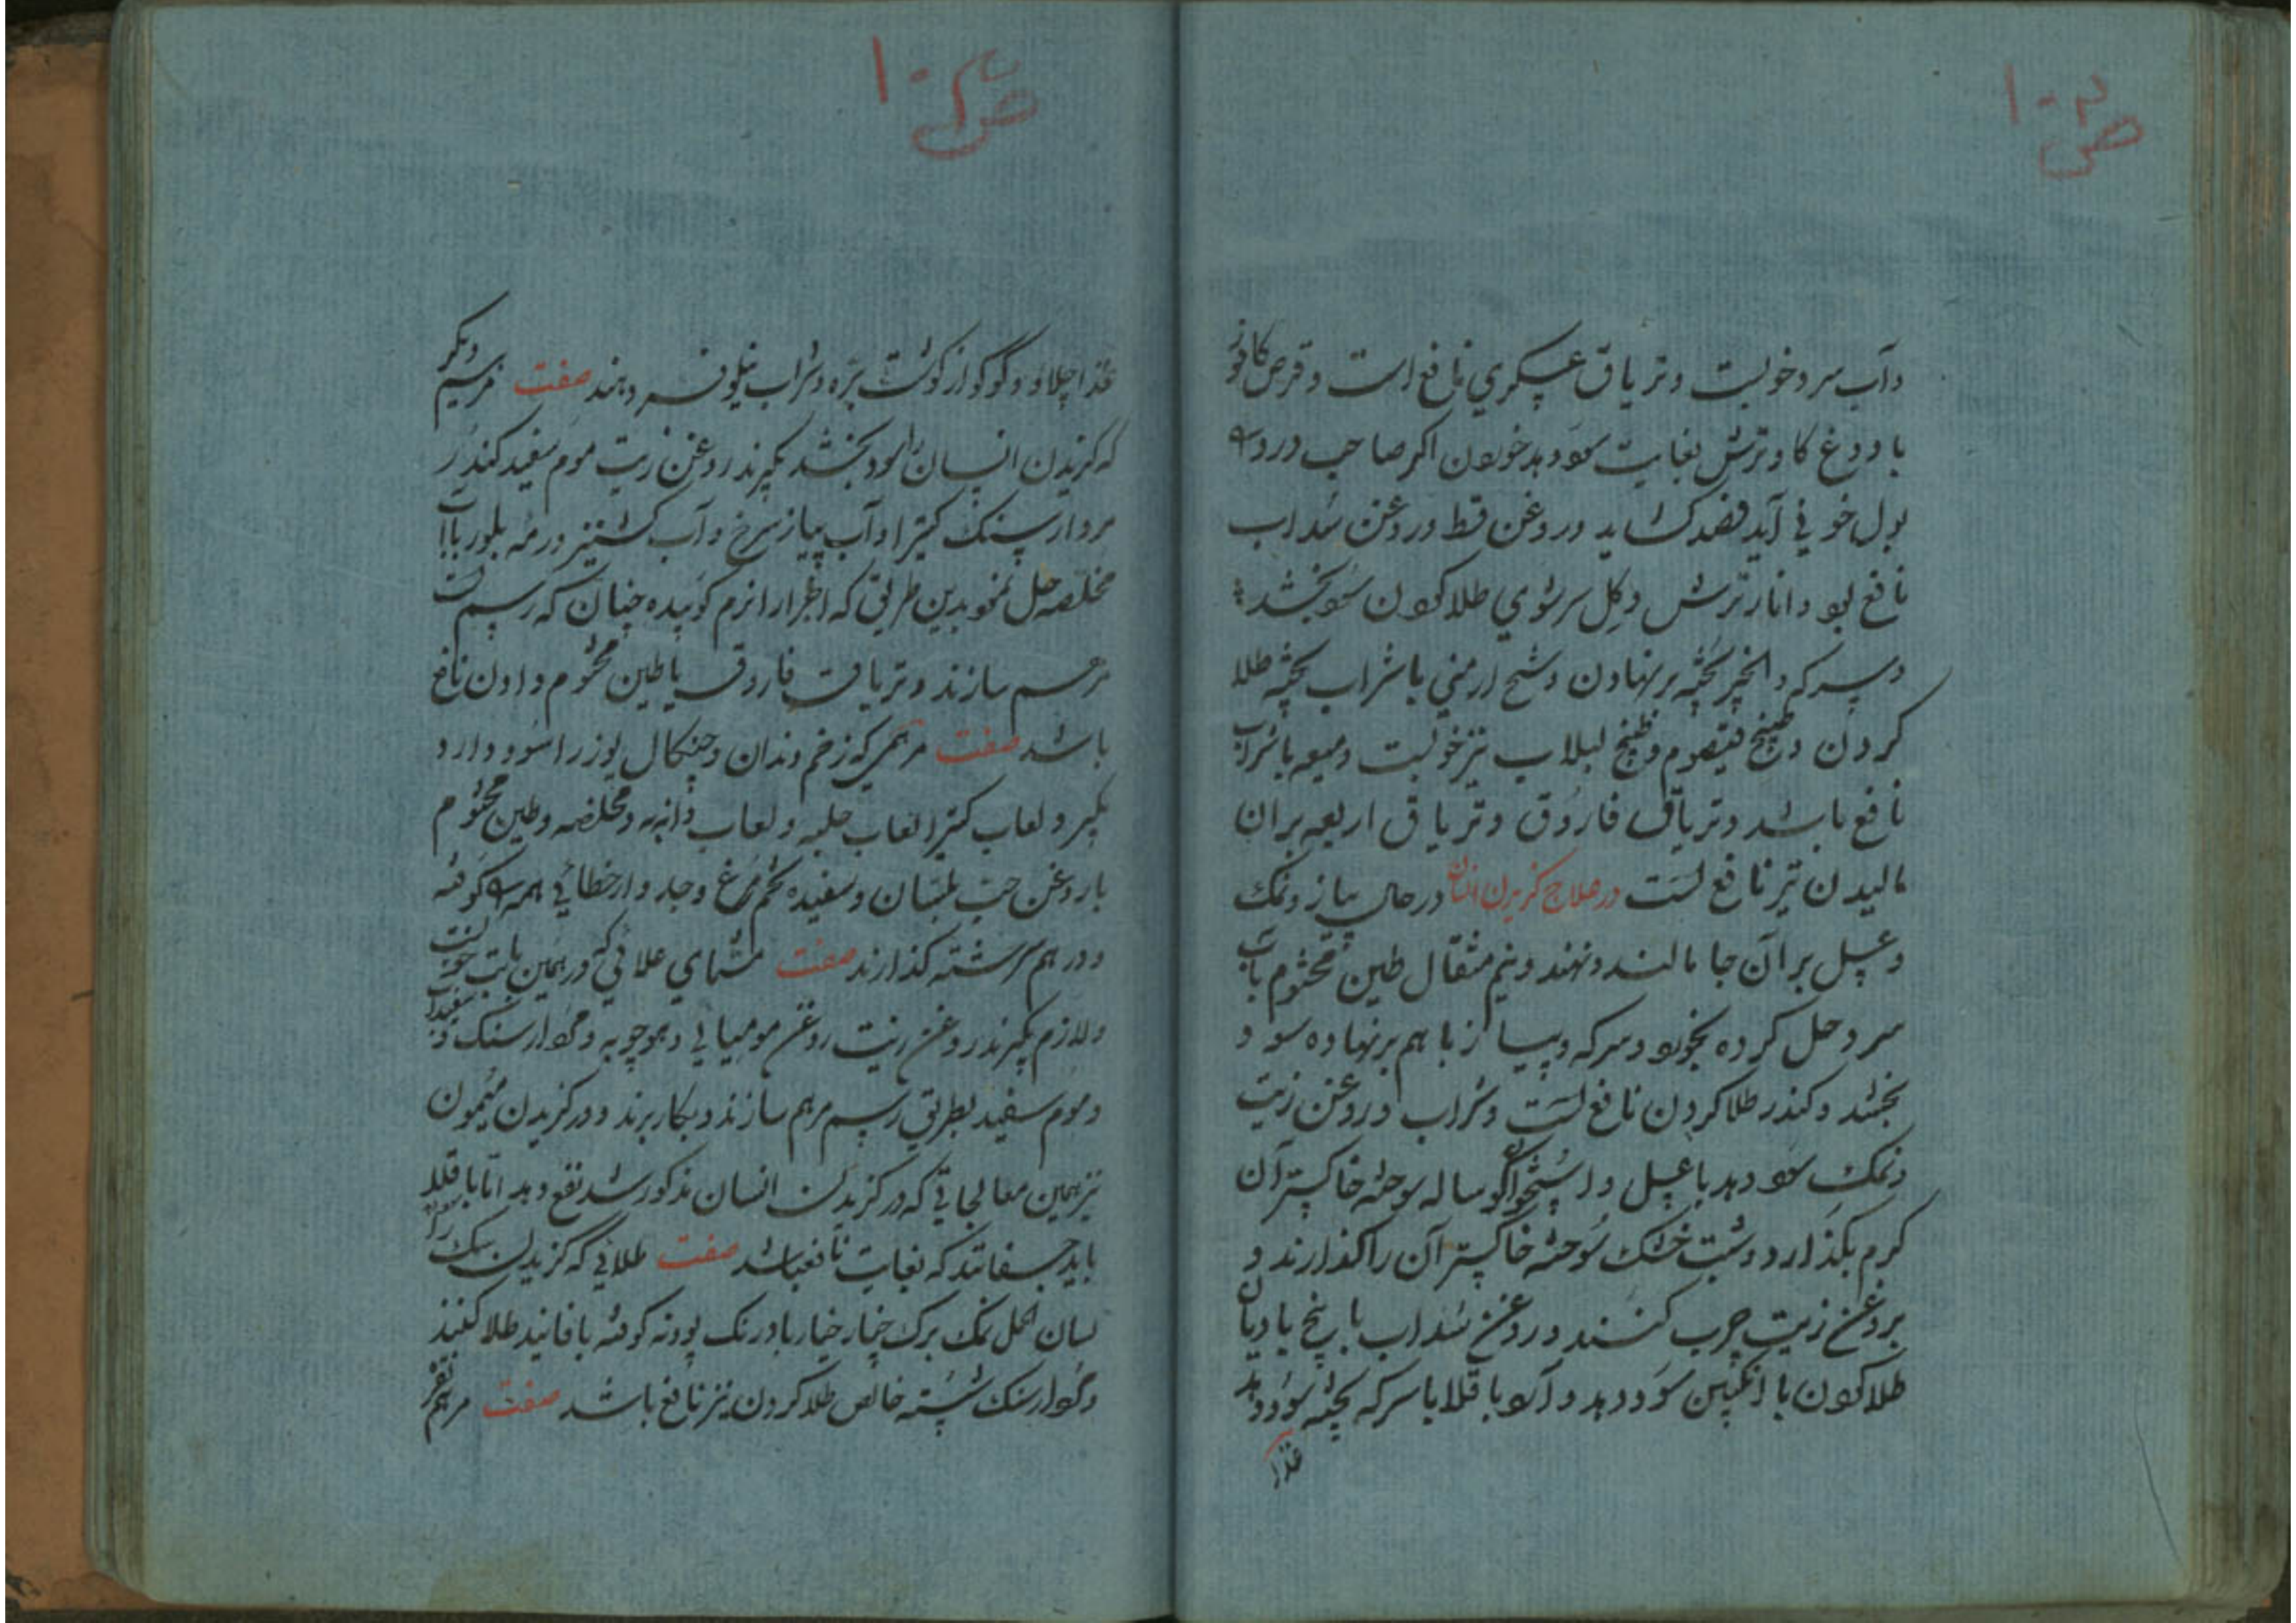 و آب سرد خوبست و تریاق عسکری نافع است و قرص کافور
با دوغ کاو ترش بغایت سود دهد خوردن اکر صاحب درد
بول خونی آید فصد کشاید و روغن قسط و روغن سداب
نافع بود و انار ترش و کل سرشوی طلا کردن سود بخشد
و سرکه و انجیر پخته بر نهادن و شیح ارمنی با شراب پخته طلا
کردن و طبیخ قیصوم و طبیخ لبلاب نیز خوبست و میعه با شراب
نافع باشد و تریاق فاروق و تریاق اربعه بران
مالیدن نیز نافع است در علاج کزیدن انسان در حال پیاز و نمک
و عسل بر آن جا مالند و نهند و نیم مثقال طین مختوم با آب
سرد حل کرده بخورد و سرکه و پیاز با هم بر نهاده سود
بخشد و کندر طلا کردن نافع است و شراب و روغن زیت
و نمک سود دهد با عسل و استخوان کوساله سوخته خاکستر آن
کرم بکذارد و شبت خشک سوخته خاکستر آن را کذارند و
بروغن زیت چرب کنند و روغن سداب با بیخ بادیان
طلا کردن با انکبین سود دهد و آرد باقلا با سرکه پخته سود دهد
غذا
ص ۱۰
غذا چلاو و کوکو از کوشت بره و شراب نیلوفر دهند صفت مرهم دیکر
که کزیدن انسان را سود بخشد بکیرند روغن زیت موم سفید کندر
مردارسنک کتیرا و آب پیاز سرخ و آب کشنیز
مخلصه حل نمود بدین طریق که اجزا را نرم کوبیده چنان که رسم است
مرهم سازند و تریاق فاروق یا طین مختوم دادن نافع
باشد صفت مرهمی که زخم دندان و چنکال یوز را سود دارد
بکیرد لعاب کتیرا لعاب حلبه و لعاب و مخلصه و طین مختوم
با روغن حب بلسان و سفیده تخم مرغ و جدوار خطائی همه را کوفته
و در هم سرشته کذارند صفت طلائی که در همین بابت خوبست
و لازم بکیرند روغن زیت روغن مومیایی و مردارسنک و سفیداب
و موم سفید بطریق رسم مرهم سازند و بکار برند و در کزیدن میمون
نیز همین معالجاتی که در کزیدن انسان مذکور شد نفع دهد اما باقلا
باید که بغایت نافع باشد صفت طلائی که کزیدن سک را
لسان الحمل نمک برک خیار خیار بادرنک پودنه کوفته با فانید طلا کنند
و مردارسنک شسته خالص طلا کردن نیز نافع باشد صفت مرهم